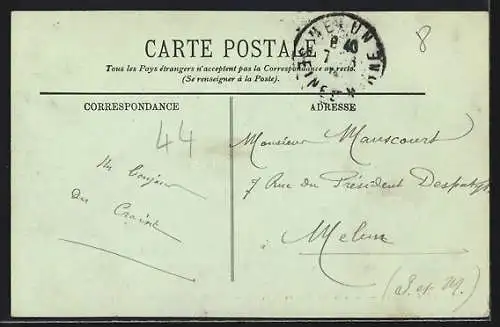 8
CARTE POSTALE
MELUN
8 40
SEINE-ET-M
Tous les Pays étrangers n'acceptent pas la Correspondance au recto.
(Se renseigner à la Poste).
CORRESPONDANCE
44
Un bonjour
du
ADRESSE
Monsieur Mauscourt
7 Rue du Président Despatys
à Melun
(S. et M.)